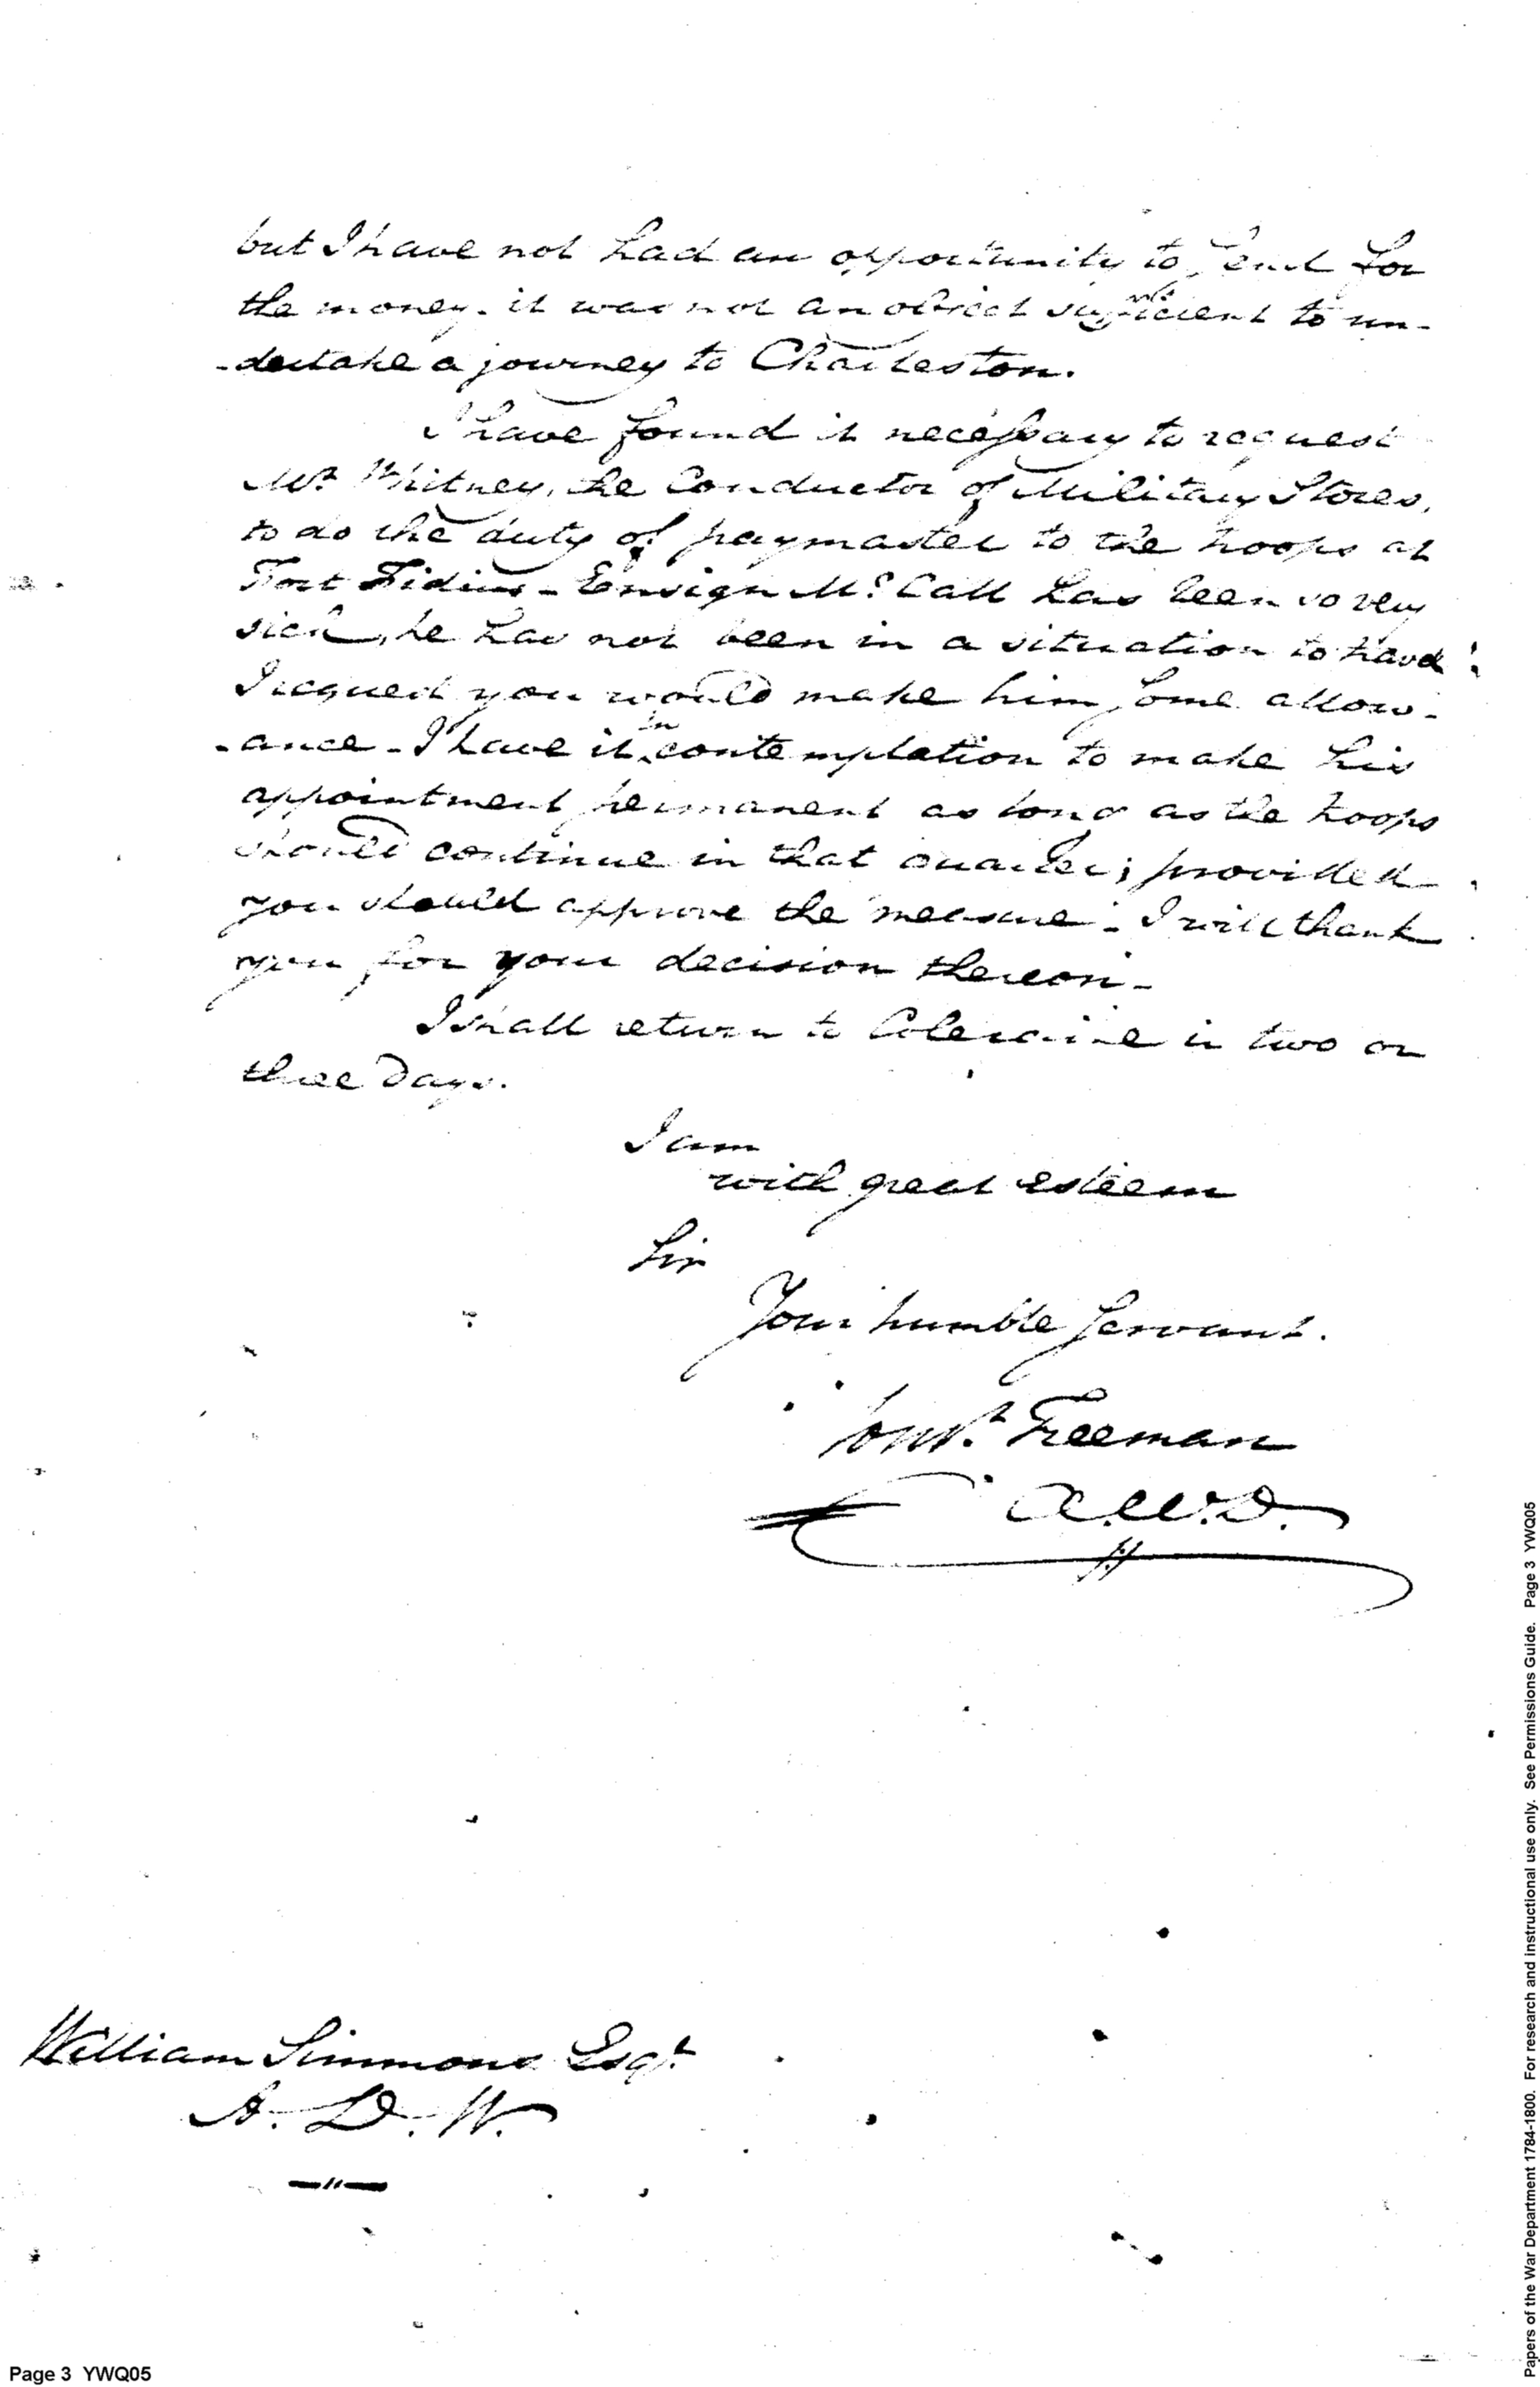 but I have not had an opportunity to send for
the money. it was not an object sufficient to un-
-dertake a journey to Charleston.
I have found it necessary to request
Mr. Whitney, the Conductor of Military Stores,
to do the duty of paymaster to the troops at
Fort Fidius - Ensign Mc. Call has been so very
sick, he has not been in a situation to travel
I request you would make him some allow-
-ance - I have it in contemplation to make his
appointment permanent as long as the troops
should continue in that quarter; provided
you should approve the measure - I will thank
you for your decision thereon -
I shall return to Coleraine in two or
three days.
I am
with great esteem
Sir
Your humble Servant.
Const. Freeman
A.W.D.
William Simmons Esqr.
A. D. W.
Page 3 YWQ05
Papers of the War Department 1784-1800. For research and instructional use only. See Permissions Guide. Page 3 YWQ05